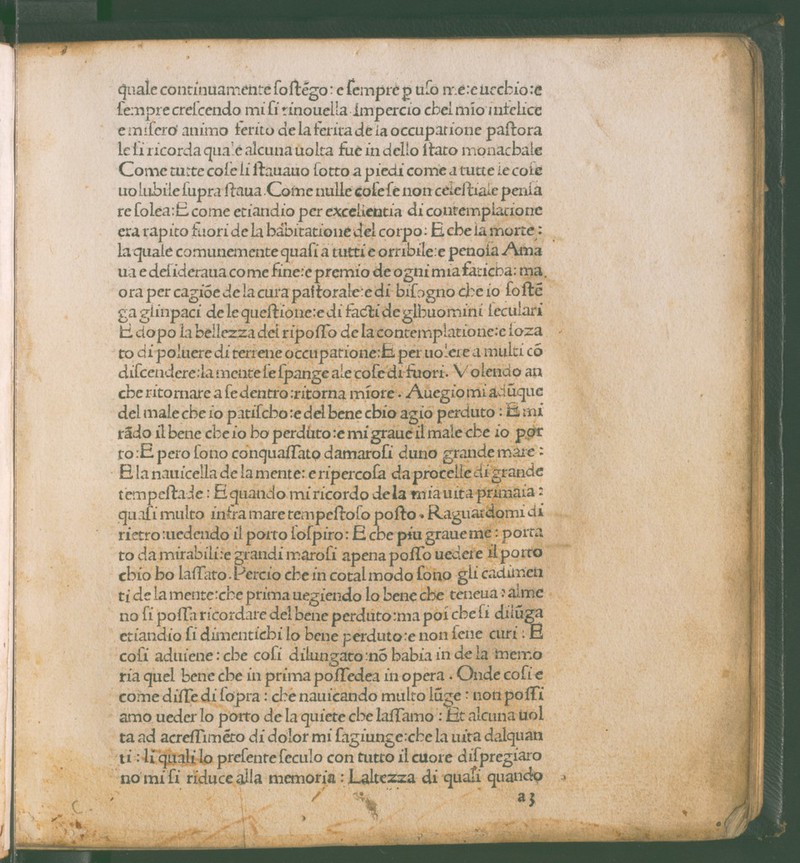 quale continuamente ſoſtẽgo: e ſempre ꝑ uſo m.e:e uecchio:e
ſempre creſcendo mi ſi rinouella .Impercio chel mio infelice
e miſero animo ferito de la ferita de la occupatione paſtora
le ſi ricorda quale alcuna uolta fue in dello ſtato monachale
Come tutte coſe li ſtauauo ſotto a piedi come a tutte le coſe
uolubile ſupra ſtaua.Come nulle coſe ſe non celeſtiale penſa
re ſolea:E come etiandio per excellentia di contemplatione
era rapito fuori de la habitatione del corpo: E che la morte:
la quale comunemente quaſi a tutti e orribile:e penoſa Ama
ua e deſideraua come fine:e premio de ogni mia faticha: ma
ora per cagiõe de la cura paſtorale:e di biſogno che io ſoſtẽ
ga glinpaci de le queſtione:e di facti de glhuomini ſeculari
E dopo la bellezza del ripoſſo de la contemplatione:e ſoza
to di poluere di terrene occupatione:E per uolere a multi cõ
diſcendere:la mente ſe ſpange ale coſe di fuori. Volendo an
che ritornare a ſe dentro:ritorna miore . Auegiomi adũque
del male che io patiſcho:e del bene chio agio perduto : E mi
rãdo il bene che io ho perduto:e mi graue il male che io por
to:E pero ſono conquaſſato damaroſi duno grande mare :
E la nauicella de la mente: e ripercoſa da procelle di grande
tempeſtade : E quando mi ricordo de la mia uita primaia :
quaſi multo infra mare tempeſtoſo poſto . Raguardomi di
rietro:uedendo il porto ſoſpiro: E che piu graue me : porta
to da mirabili:e grandi maroſi apena poſſo uedere il porto
chio ho laſſato.Percio che in cotal modo ſono gli cadimen
ti de la mente:che prima uegiendo lo bene che teneua : alme
no ſi poſſa ricordare del bene perduto:ma poi che ſi dilũga
etiandio ſi dimentichi lo bene perduto:e non ſene curi : E
coſi aduiene : che coſi dilungato:nõ habia in de la memo
ria quel bene che in prima poſſedea in opera . Onde coſi e
come diſſe di ſopra : che nauicando multo lũge : non poſſi
amo ueder lo porto de la quiete che laſſamo : Et alcuna uol
ta ad acreſſimẽto di dolor mi ſagiunge:che la uita dalquan
ti : li quali lo preſente ſeculo con tutto il cuore diſpregiaro
no mi ſi riduce alla memoria : Laltezza di quali quando
a3